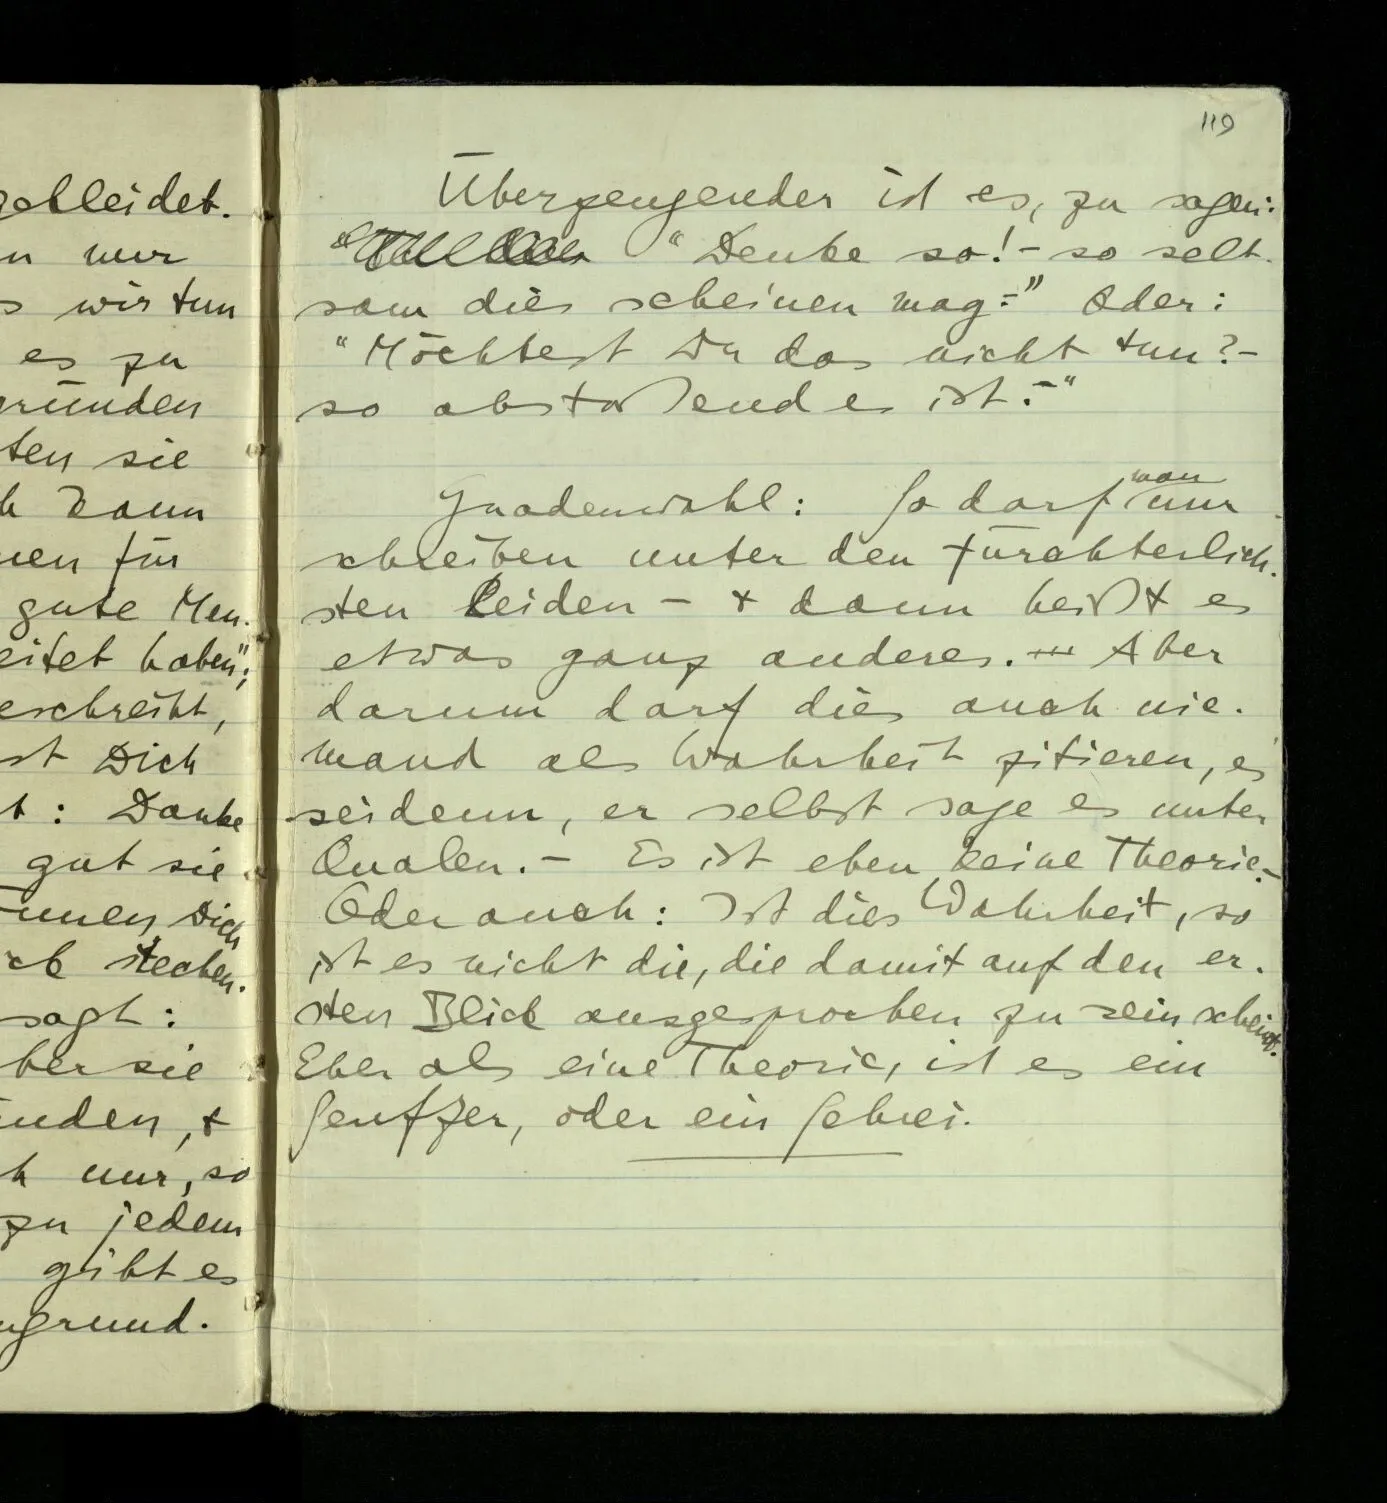 gekleidet.
n wir
s wir tun
es zu
gründen
ten sie
h dann
nen für
gute Men-
eitet haben";
eschreibt,
st Dich
t: Danke
gut sie
nnen Dich
ck stechen.
sagt:
ber sie
nden, +
h nur, so
zu jedem
gibt es
ngrund.
119
Überzeugender ist es, zu sagen:
"Denke so! – so selt-
sam dies scheinen mag –" Oder:
"Möchtest Du das nicht tun? –
so abstoßend es ist. –"
Gnadenwahl: So darf man nur
schreiben unter den fürchterlich-
sten Leiden – + dann heißt es
etwas ganz anderes. Aber
darum darf dies auch nie-
mand als Wahrheit zitieren, es
seidenn, er selbst sage es unter
Qualen. – Es ist eben keine Theorie. –
Oder auch: Ist dies Wahrheit, so
ist es nicht die, die damit auf den er-
sten Blick ausgesprochen zu sein scheint.
Eher als eine Theorie, ist es ein
Seufzer, oder ein Schrei.